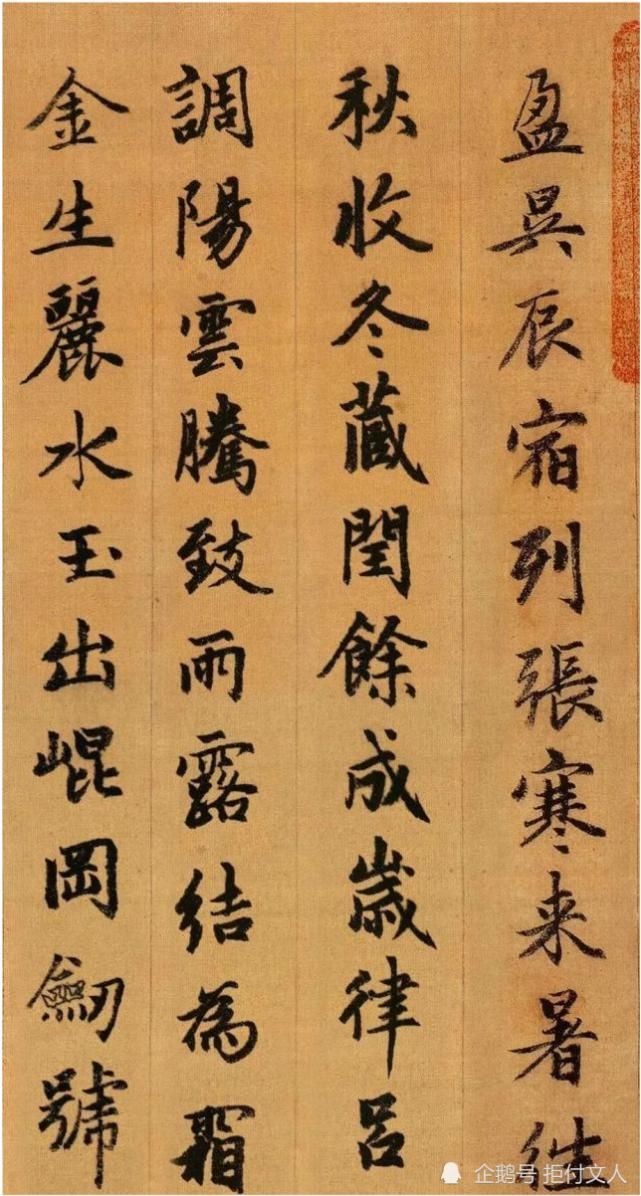 盈昃辰宿列張寒来暑往
秋收冬藏閏餘成歲律呂
調陽雲騰致雨露結為霜
金生麗水玉出崐岡劒號
企鹅号 拒付文人